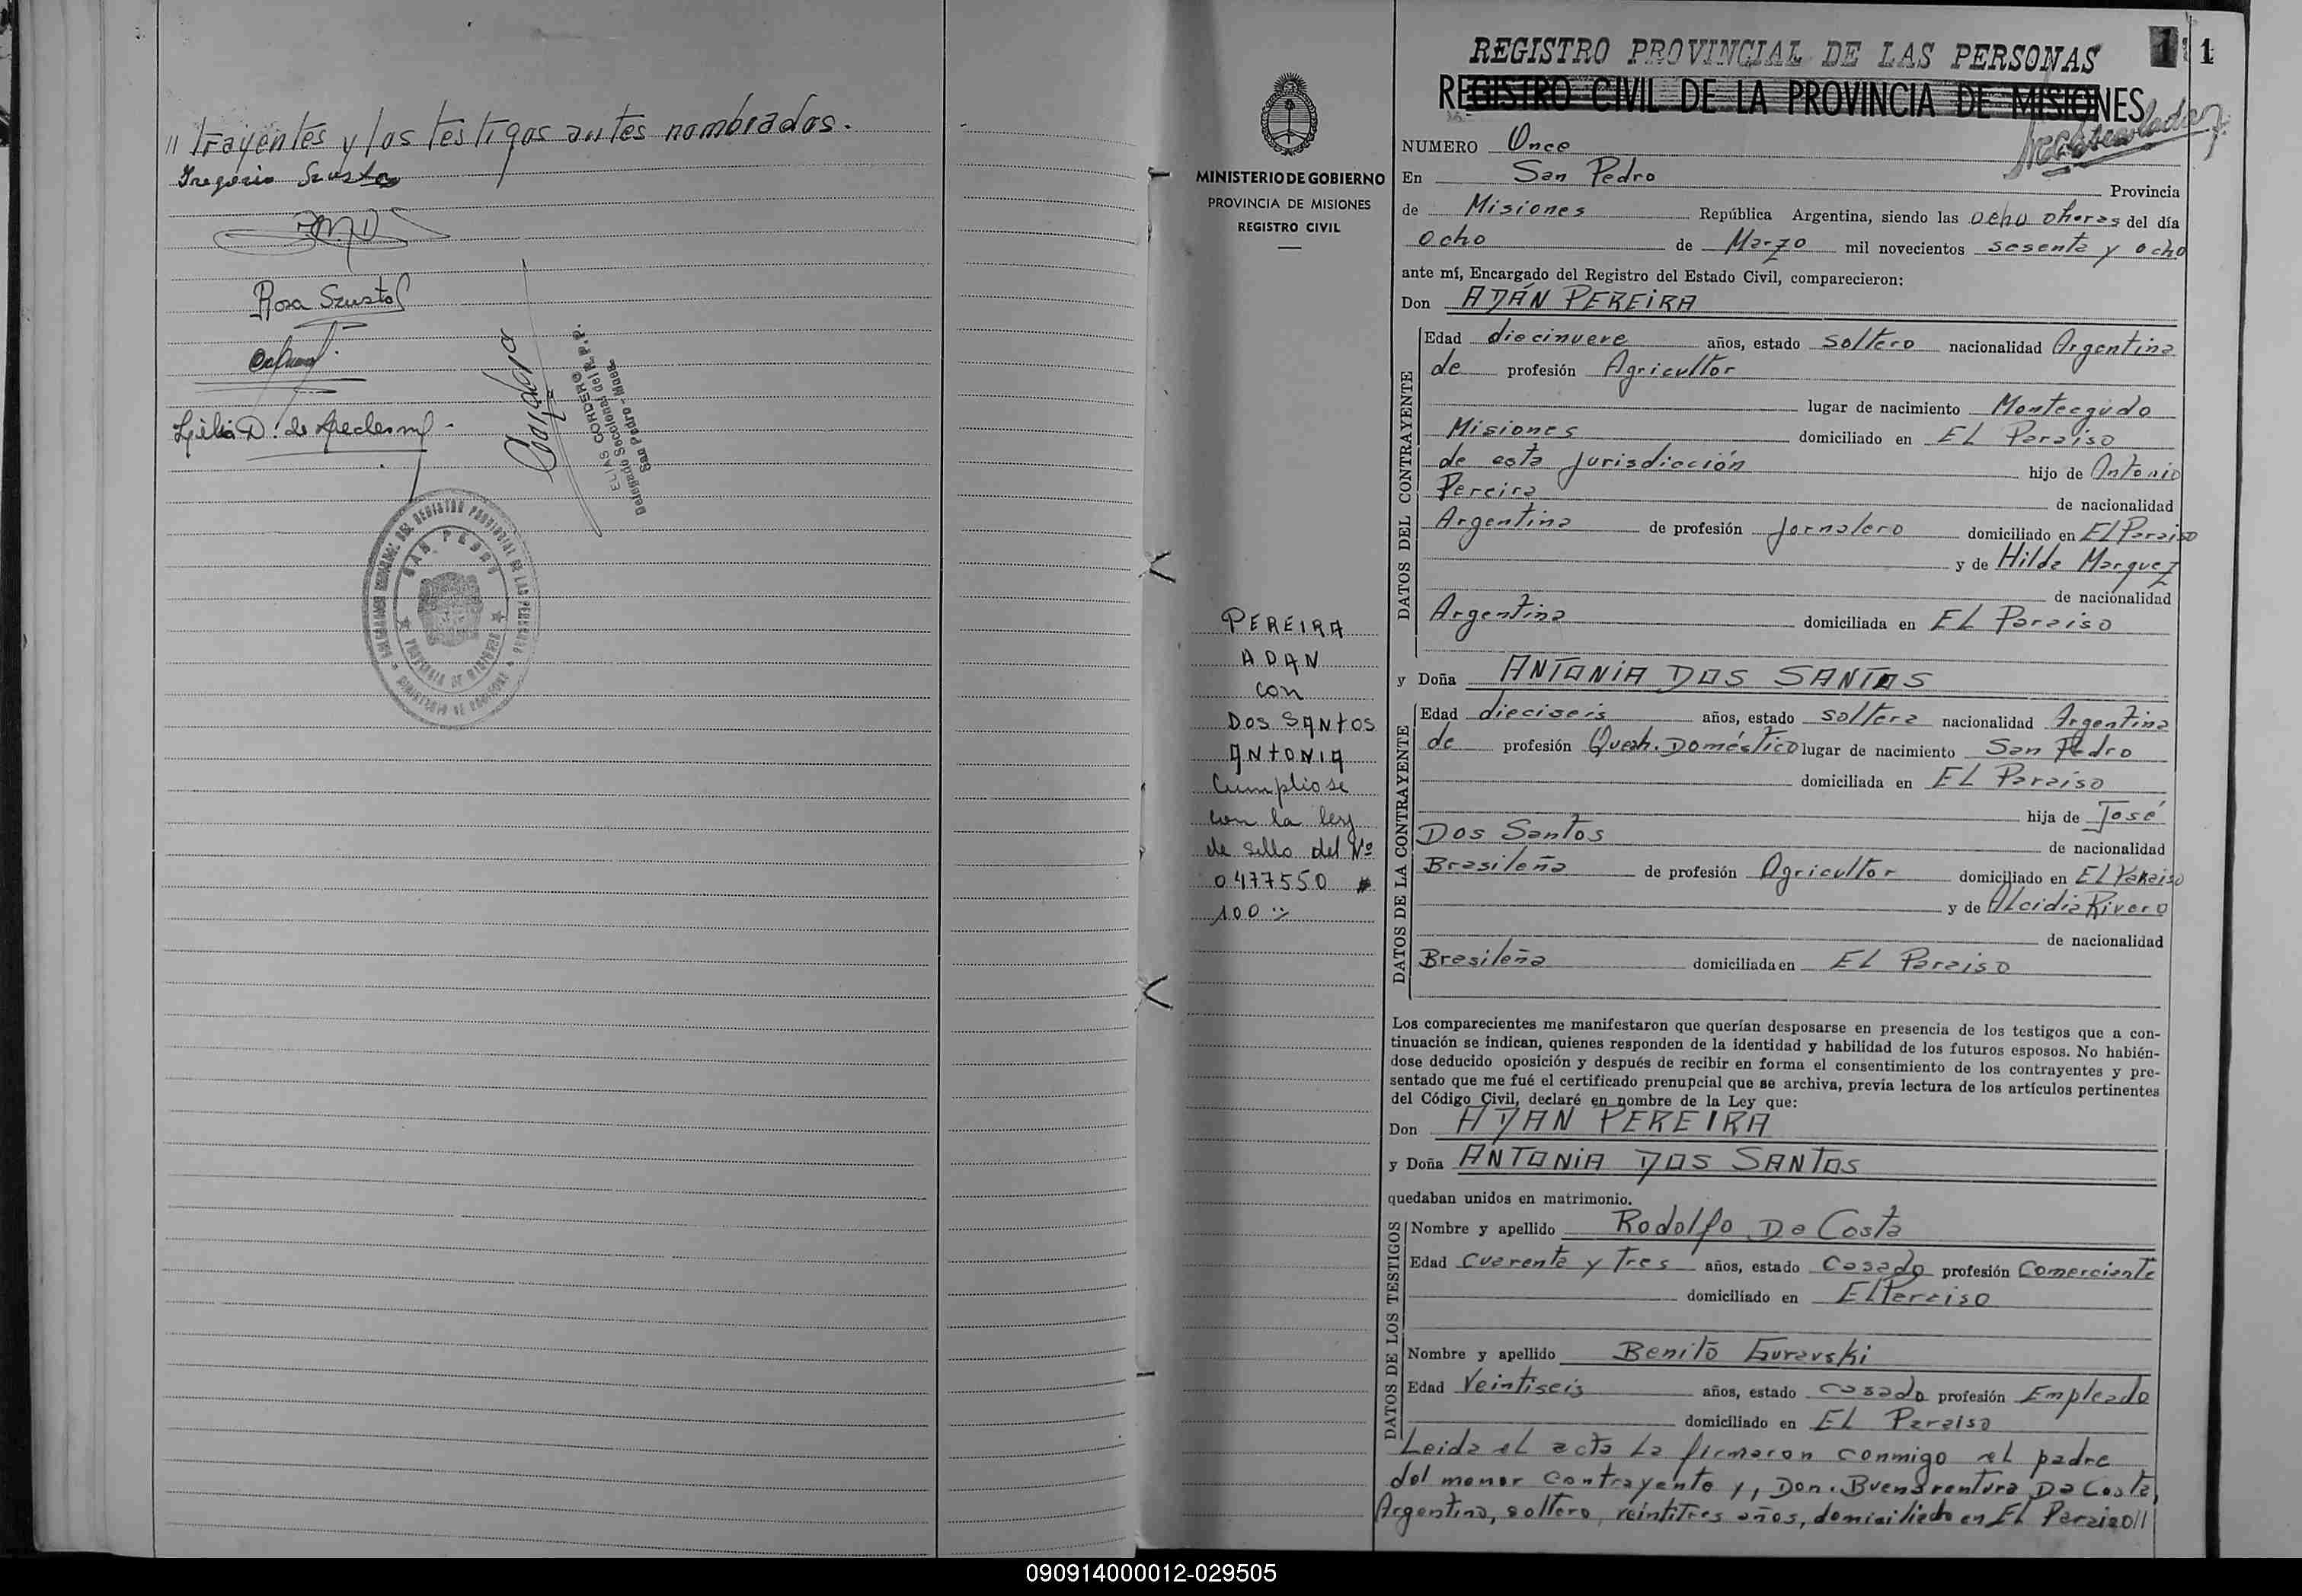 // trayentes y los testigos antes nombrados.
Gregorio Szusta
Rosa Szusta
Lilia D. de
Cordero
ELIAS CORDERO
Delegado Seccional del R. P. P.
San Pedro - Mnes.
DEL REGISTRO PROVINCIAL DE LAS PERSONAS
SAN PEDRO
PROVINCIA DE MISIONES
MINISTERIO DE GOBIERNO
MINISTERIO DE GOBIERNO
PROVINCIA DE MISIONES
REGISTRO CIVIL
PEREIRA
ADAN
con
DOS SANTOS
ANTONIA
Cumpliose
con la ley
de sello del Nº
0477550 #
100
REGISTRO PROVINCIAL DE LAS PERSONAS
1
REGISTRO CIVIL DE LA PROVINCIA DE MISIONES
NUMERO Once
En San Pedro Provincia
de Misiones República Argentina, siendo las ocho horas del día
ocho de Marzo mil novecientos sesenta y ocho
ante mí, Encargado del Registro del Estado Civil, comparecieron:
Don ADÁN PEREIRA
DATOS DEL CONTRAYENTE
Edad diecinueve años, estado soltero nacionalidad Argentina
de profesión Agricultor
lugar de nacimiento Monteagudo
Misiones domiciliado en EL Paraiso
de esta jurisdicción hijo de Antonio
Pereira de nacionalidad
Argentina de profesión Jornalero domiciliado en El Paraiso
y de Hilda Marquez
de nacionalidad
Argentina domiciliada en EL Paraiso
y Doña ANTONIA DOS SANTOS
DATOS DE LA CONTRAYENTE
Edad dieciseis años, estado soltera nacionalidad Argentina
de profesión Queh. Doméstico lugar de nacimiento San Pedro
domiciliada en EL Paraiso
hija de José
Dos Santos de nacionalidad
Brasileña de profesión Agricultor domiciliado en El Paraiso
y de Alcidia Rivero
de nacionalidad
Brasileña domiciliada en EL Paraiso
Los comparecientes me manifestaron que querían desposarse en presencia de los testigos que a con-
tinuación se indican, quienes responden de la identidad y habilidad de los futuros esposos. No habién-
dose deducido oposición y después de recibir en forma el consentimiento de los contrayentes y pre-
sentado que me fué el certificado prenupcial que se archiva, previa lectura de los artículos pertinentes
del Código Civil, declaré en nombre de la Ley que:
Don ADAN PEREIRA
y Doña ANTONIA DOS SANTOS
quedaban unidos en matrimonio.
DATOS DE LOS TESTIGOS
Nombre y apellido Rodolfo Da Costa
Edad Cuarenta y Tres años, estado Casado profesión Comerciante
domiciliado en El Paraiso
Nombre y apellido Benito Guravski
Edad Veintiseis años, estado casado profesión Empleado
domiciliado en EL Paraiso
Leida el acta la firmaron conmigo el padre
del menor contrayente y, Don. Buenaventura Da Costa,
Argentino, soltero, veintitres años, domiciliado en EL Paraiso//
090914000012-029505